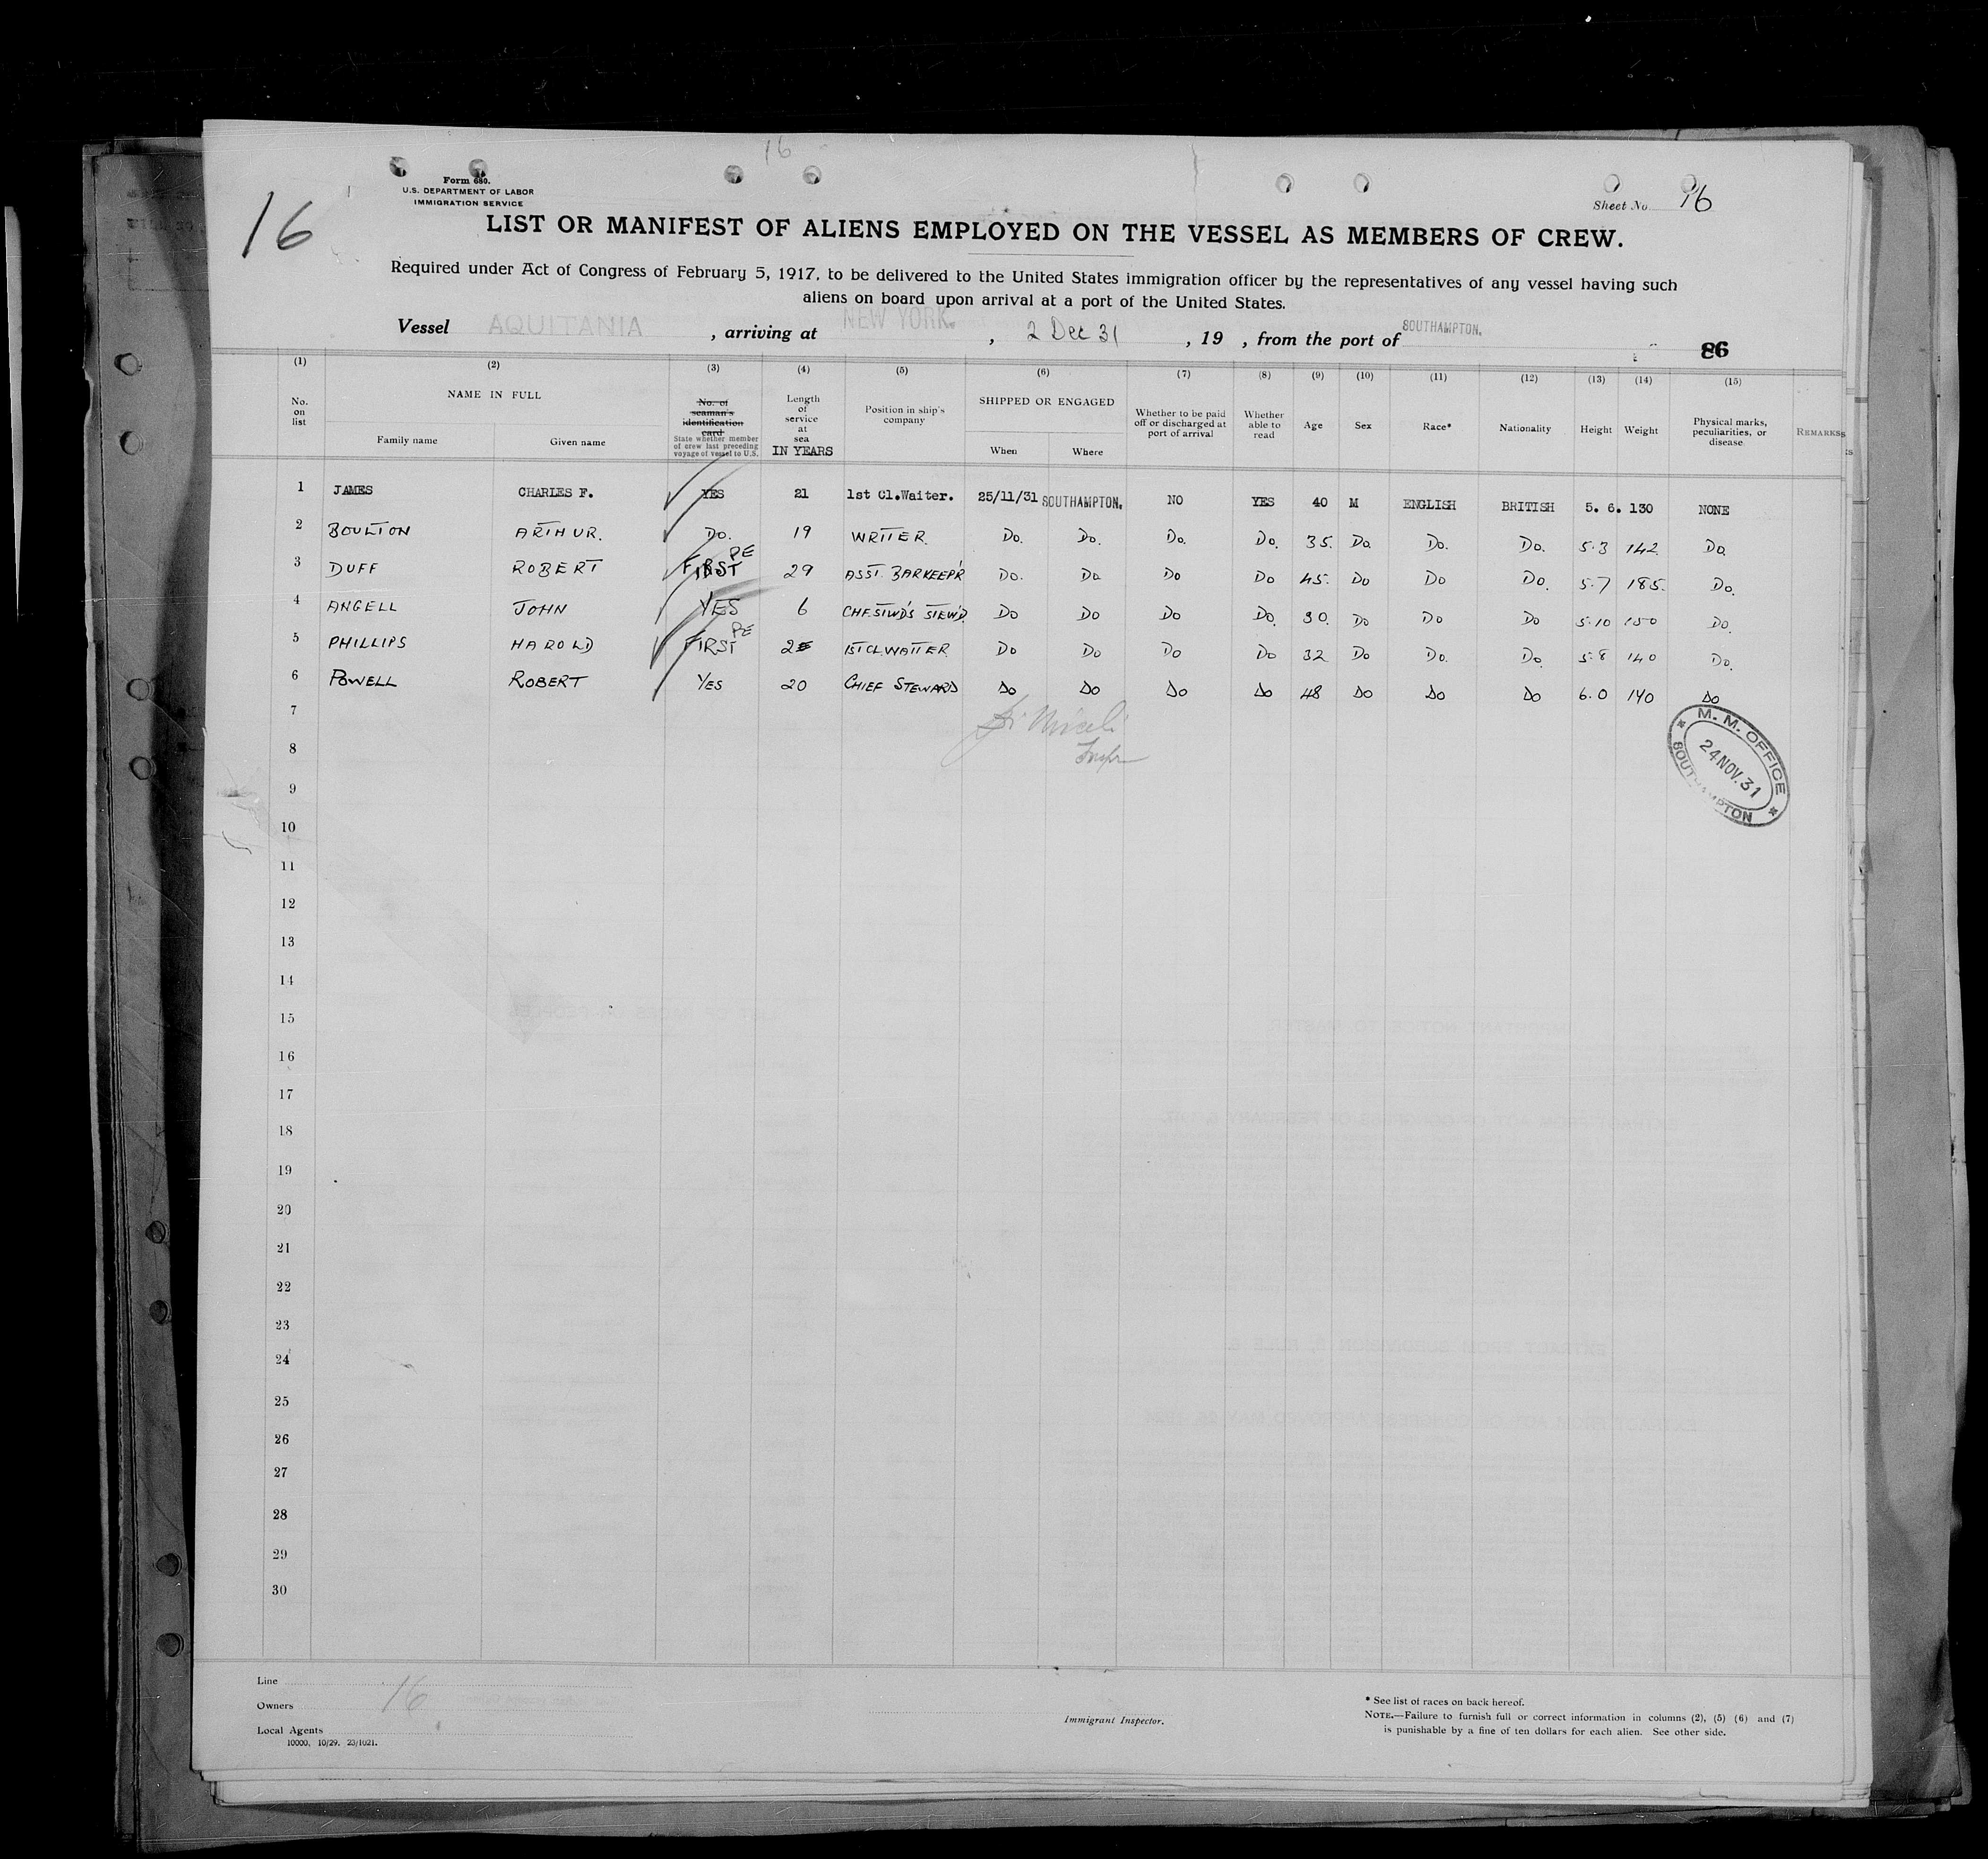 16
Form 680.
U.S. DEPARTMENT OF LABOR
IMMIGRATION SERVICE
16
Sheet No. 16
LIST OR MANIFEST OF ALIENS EMPLOYED ON THE VESSEL AS MEMBERS OF CREW.
Required under Act of Congress of February 5, 1917, to be delivered to the United States immigration officer by the representatives of any vessel having such
aliens on board upon arrival at a port of the United States.
Vessel AQUITANIA , arriving at NEW YORK. , 2 Dec 31 , 19 , from the port of SOUTHAMPTON.
86
(1) (2) (3) (4) (5) (6) (7) (8) (9) (10) (11) (12) (13) (14) (15)
No. on list
NAME IN FULL
Family name Given name
No. of seaman's identification card
State whether member of crew last preceding voyage of vessel to U.S.
Length of service at sea IN YEARS
Position in ship's company
SHIPPED OR ENGAGED
When Where
Whether to be paid off or discharged at port of arrival
Whether able to read
Age Sex Race* Nationality Height Weight
Physical marks, peculiarities, or disease
REMARKS
1 JAMES CHARLES F. YES 21 1st Cl.Waiter. 25/11/31 SOUTHAMPTON. NO YES 40 M ENGLISH BRITISH 5. 6. 130 NONE
2 BOULTON ARTHUR. Do. 19 WRITER. Do. Do. Do. Do. 35. Do. Do. Do. 5.3 142 Do.
3 DUFF ROBERT FIRST PE 29 ASST. BARKEEP'R Do. Do Do Do 45. Do Do Do. 5.7 185. Do.
4 ANGELL JOHN YES 6 CHF.STWD'S STEW'D Do Do Do Do. 30. Do Do Do 5.10 150 Do.
5 PHILLIPS HAROLD FIRST PE 1ST CL WAITER Do Do Do Do 32 Do Do. Do. 5.8 140 Do.
6 POWELL ROBERT YES 20 CHIEF STEWARD Do Do Do Do 48 Do Do Do 6.0 140 Do
Inspr
M. M. OFFICE
24 NOV. 31
SOUTHAMPTON
7
8
9
10
11
12
13
14
15
16
17
18
19
20
21
22
23
24
25
26
27
28
29
30
Line
Owners 16
Local Agents
10000, 10/29. 23/1021.
Immigrant Inspector.
* See list of races on back hereof.
NOTE.—Failure to furnish full or correct information in columns (2), (5) (6) and (7)
is punishable by a fine of ten dollars for each alien. See other side.